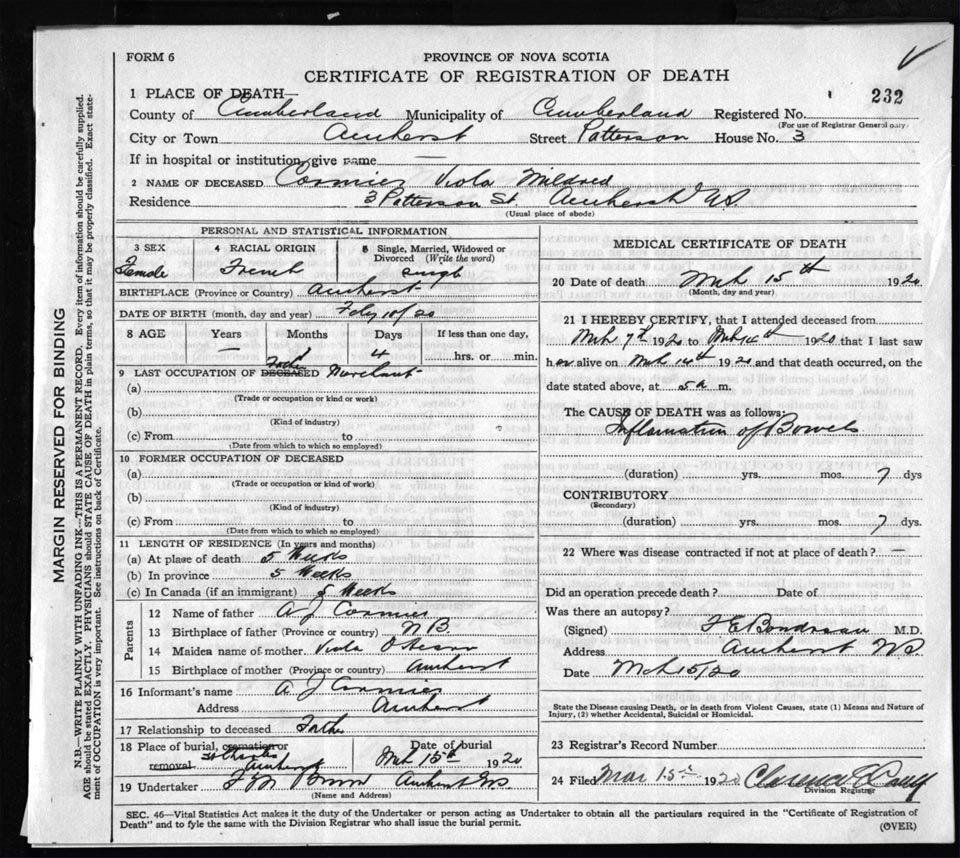 FORM 6
PROVINCE OF NOVA SCOTIA
CERTIFICATE OF REGISTRATION OF DEATH
232
1 PLACE OF DEATH—
County of Cumberland Municipality of Cumberland Registered No.
(For use of Registrar General only.)
City or Town Amherst Street Patterson House No. 3
If in hospital or institution, give name —
2 NAME OF DECEASED Cormier Viola Mildred
Residence 3 Patterson St. Amherst N.S.
(Usual place of abode)
PERSONAL AND STATISTICAL INFORMATION
3 SEX 4 RACIAL ORIGIN 5 Single, Married, Widowed or Divorced (Write the word)
Female French single
BIRTHPLACE (Province or Country) Amherst
DATE OF BIRTH (month, day and year) Feby 10/20
8 AGE Years Months Days If less than one day,
— 1 4 hrs. or min.
9 LAST OCCUPATION OF DECEASED Father Merchant
(a)
(Trade or occupation or kind or work)
(b)
(Kind of industry)
(c) From to
(Date from which to which so employed)
10 FORMER OCCUPATION OF DECEASED
(a)
(Trade or occupation or kind of work)
(b)
(Kind of industry)
(c) From to
(Date from which to which so employed)
11 LENGTH OF RESIDENCE (In years and months)
(a) At place of death 5 Weeks
(b) In province 5 Weeks
(c) In Canada (if an immigrant) 5 Weeks
Parents
12 Name of father A J Cormier
13 Birthplace of father (Province or country) N B.
14 Maiden name of mother Viola
15 Birthplace of mother (Province or country) Amherst
16 Informant's name A J Cormier
Address Amherst
17 Relationship to deceased Father
18 Place of burial, cremation or removal Date of burial
St Charles Amherst Mch 15th 1920
19 Undertaker Amherst N.S.
(Name and Address)
MEDICAL CERTIFICATE OF DEATH
20 Date of death Mch 15th 1920
(Month, day and year)
21 I HEREBY CERTIFY, that I attended deceased from
Mch 7th 1920 to Mch 14th 1920 that I last saw
her alive on Mch 14th 1920 and that death occurred, on the
date stated above, at 5 a m.
The CAUSE OF DEATH was as follows:
Inflamation of Bowels
(duration) yrs. mos. 7 dys
CONTRIBUTORY
(Secondary)
(duration) yrs. mos. 7 dys.
22 Where was disease contracted if not at place of death? —
Did an operation precede death? Date of
Was there an autopsy?
(Signed) F E Boudreau M.D.
Address Amherst N.S.
Date Mch 15/20
State the Disease causing Death, or in death from Violent Causes, state (1) Means and Nature of
Injury, (2) whether Accidental, Suicidal or Homicidal.
23 Registrar's Record Number
24 Filed Mar 15th 1920 Clarence E
Division Registrar
SEC. 46—Vital Statistics Act makes it the duty of the Undertaker or person acting as Undertaker to obtain all the particulars required in the "Certificate of Registration of
Death" and to fyle the same with the Division Registrar who shall issue the burial permit.
(OVER)
MARGIN RESERVED FOR BINDING
N.B.—WRITE PLAINLY WITH UNFADING INK—THIS IS A PERMANENT RECORD. Every item of information should be carefully supplied.
AGE should be stated EXACTLY. PHYSICIANS should STATE CAUSE OF DEATH in plain terms, so that it may be properly classified. Exact state-
ment of OCCUPATION is very important. See instructions on back of Certificate.